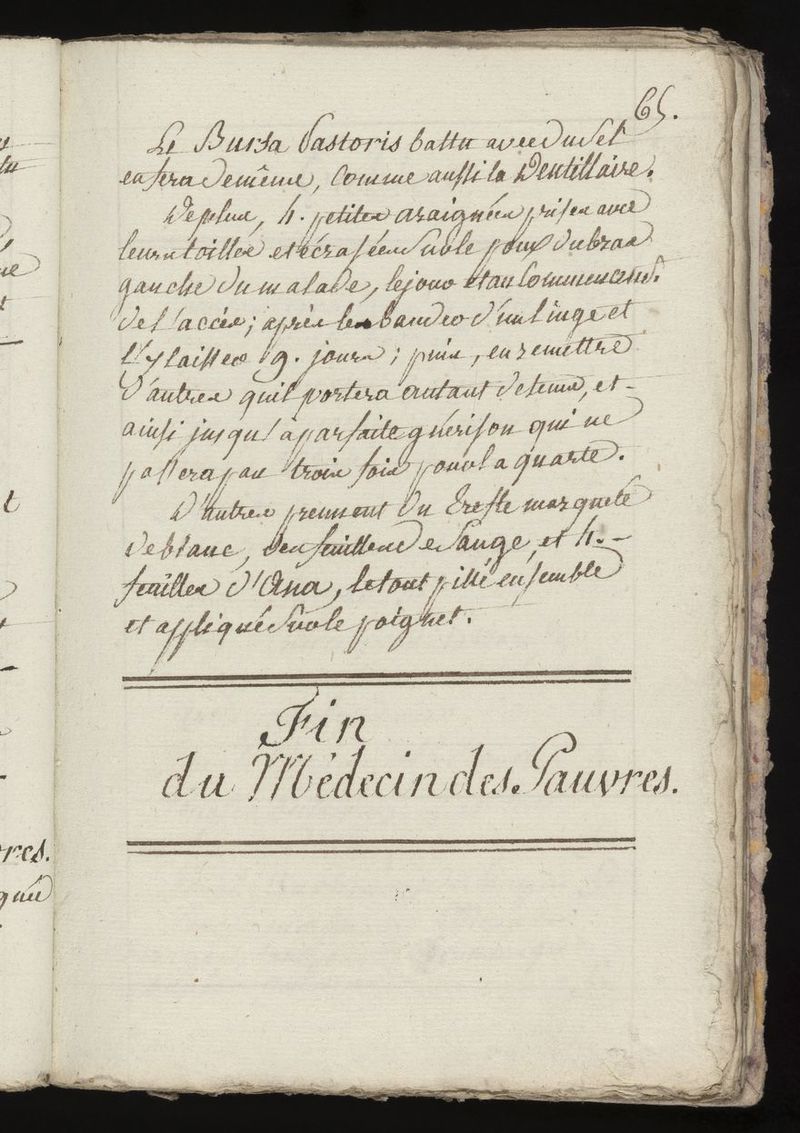 65.
Le Bursa Pastoris battu avec du sel
en sera de même, comme aussi la Dentillaire.
De plus, 4. petites araignées prises avec
leurs toilles et écrasées sur le poux du bras
gauche du malade, le jour et au commencem.t
de l'accès; après les bander d'un linge et
l'y laisser 9. jours; puis, en remettre
d'autres qu'il portera autant de tems, et
ainsi jusqu'à parfaite guérison qui ne
passera pas trois fois pour la quarte.
D'autres prennent du trefle marqueté
de blanc, des feuilles de Sauge, et 4.
feuilles d', le tout pillé ensemble
et appliqué sur le poignet.
Fin
du Médecin des Pauvres.
res.